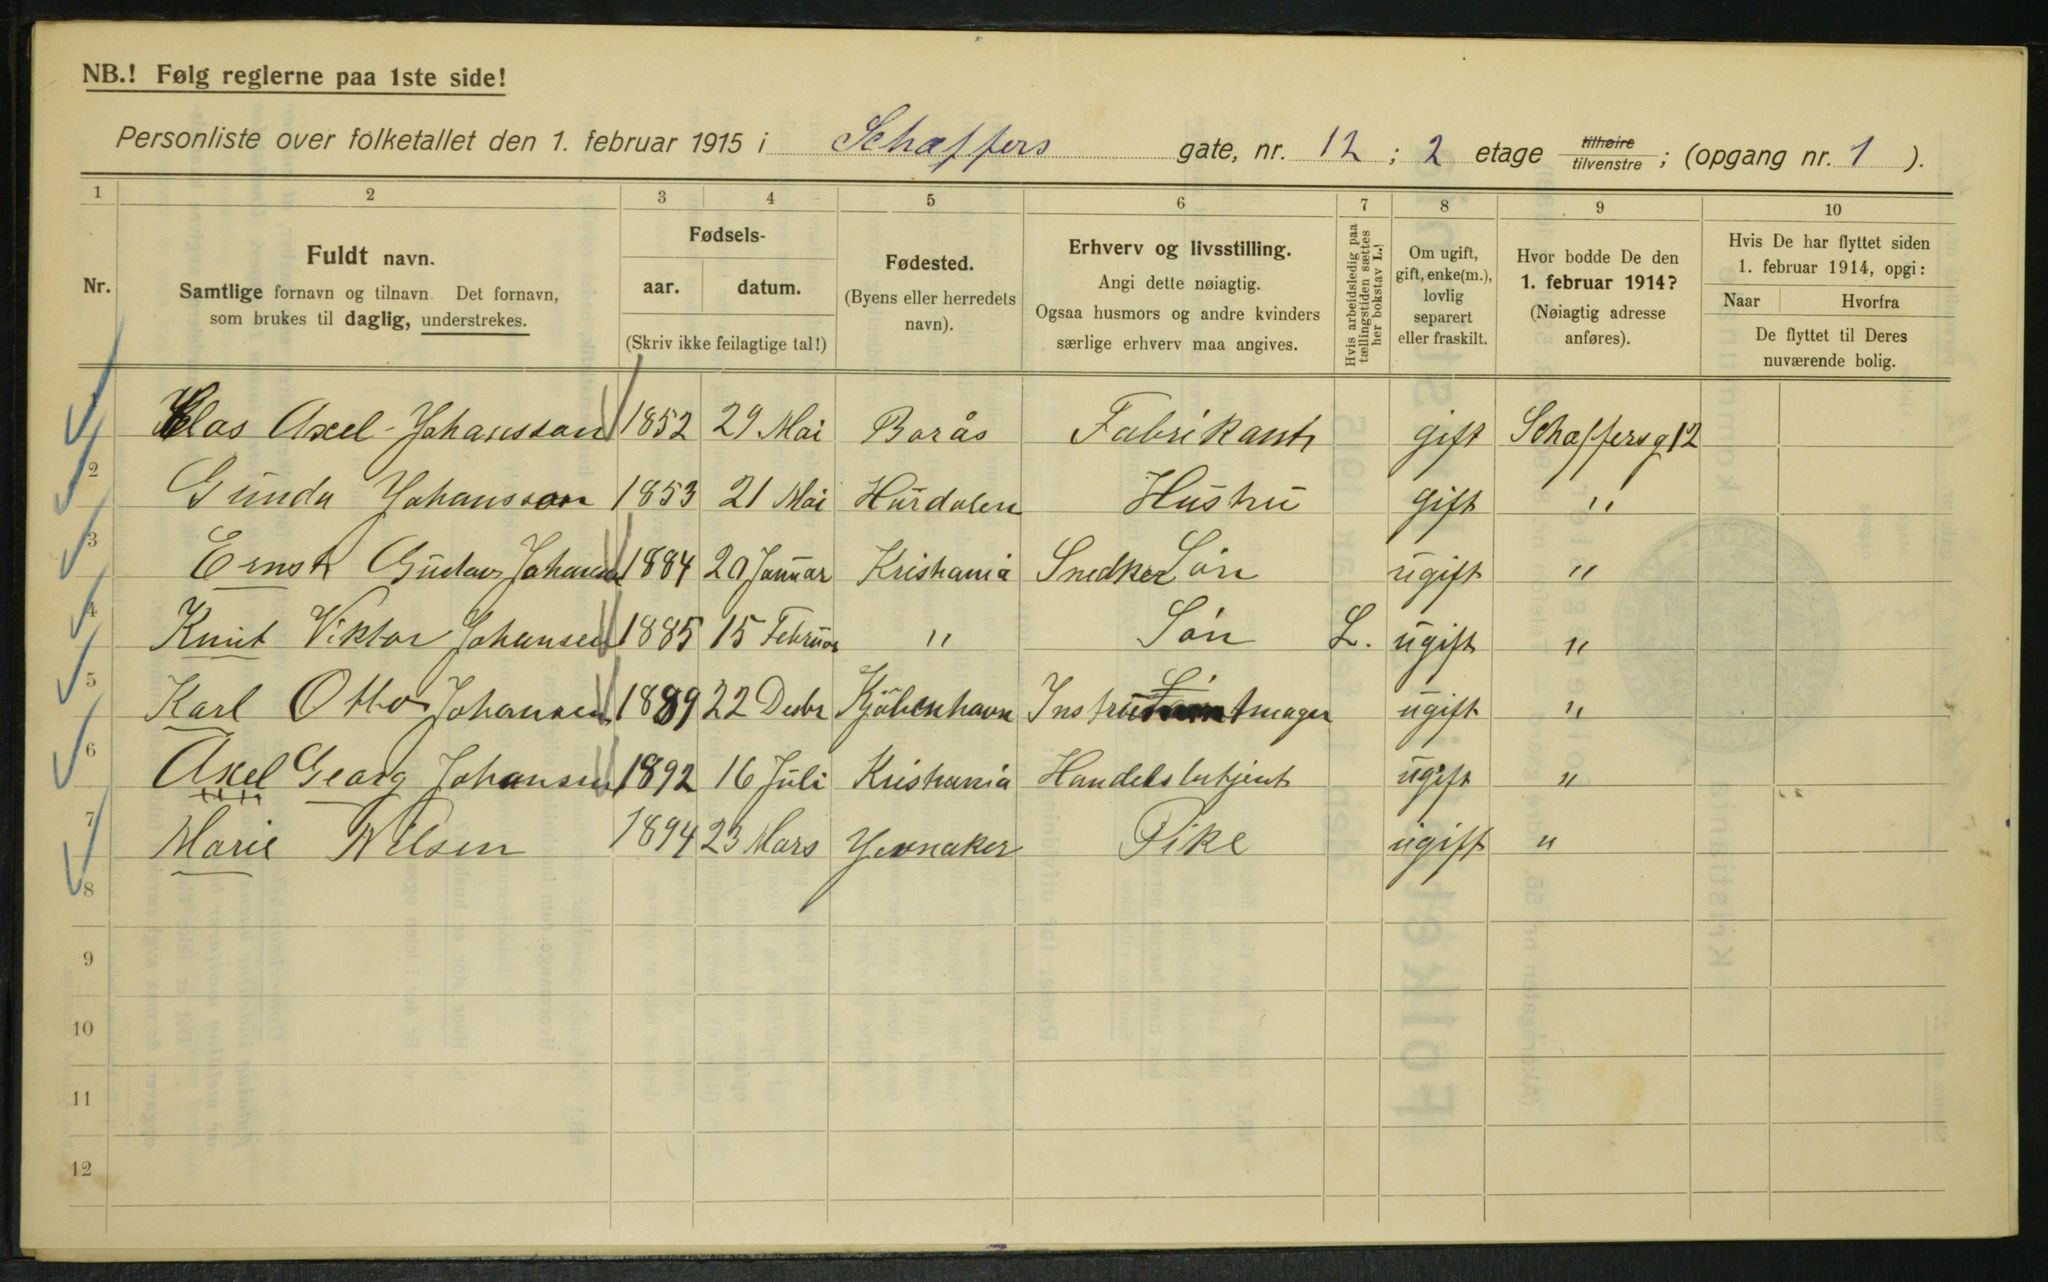 NB.! Følg reglerne paa 1ste side!
Personliste over folketallet den 1. februar 1915 i Schæffers gate, nr. 12 ; 2 etage tilhøire tilvenstre ; (opgang nr. 1 ).
1 2 3 4 5 6 7 8 9 10
Nr.
Fuldt navn.
Samtlige fornavn og tilnavn. Det fornavn,
som brukes til daglig, understrekes.
Fødsels-
aar. datum.
(Skriv ikke feilagtige tal!)
Fødested.
(Byens eller herredets
navn).
Erhverv og livsstilling.
Angi dette nøiagtig.
Ogsaa husmors og andre kvinders
særlige erhverv maa angives.
Hvis arbeidsledig paa
tællingstiden sættes
her bokstav L.!
Om ugift,
gift, enke(m.),
lovlig
separert
eller fraskilt.
Hvor bodde De den
1. februar 1914?
(Nøiagtig adresse
anføres).
Hvis De har flyttet siden
1. februar 1914, opgi:
Naar Hvorfra
De flyttet til Deres
nuværende bolig.
1 Klas Axel Johansson 1852 29 Mai Borås Fabrikant gift Schæffersg 12
2 Gunda Johansson 1853 21 Mai Hurdalen Hustru gift "
3 Ernst Gustav Johansen 1884 20 Januar Kristiania Snedker Søn ugift "
4 Knut Viktor Johansen 1885 15 Februar " Søn L. ugift "
5 Karl Otto Johansen 1889 22 Desbr Kjøbenhavn Instrumentmager ugift "
6 Axel Georg Johansen 1892 16 Juli Kristiania Handelsbetjent ugift "
7 Marie Nilsen 1894 23 Mars Jevnaker Pike ugift "
8
9
10
11
12